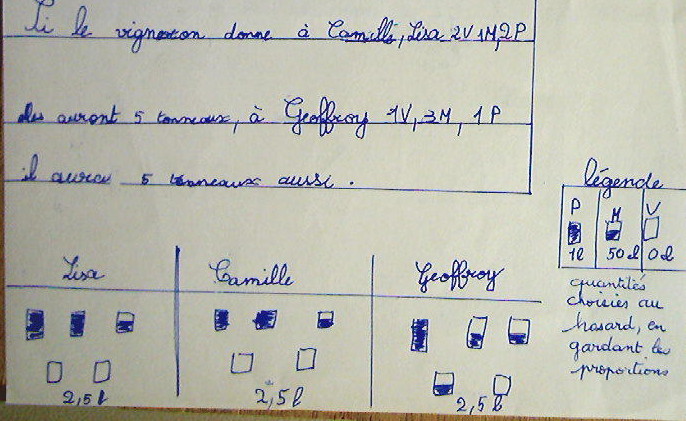 Si le vigneron donne à Camille, Lisa 2V 1M, 2P
elles auront 5 tonneaux, à Geoffroy 1V, 3M, 1P
il aura 5 tonneaux aussi.
légende
P M V
1l 50cl 0cl
quantités
choisies au
hasard, en
gardant les
proportions
Lisa Camille Geoffroy
2,5l 2,5l 2,5l